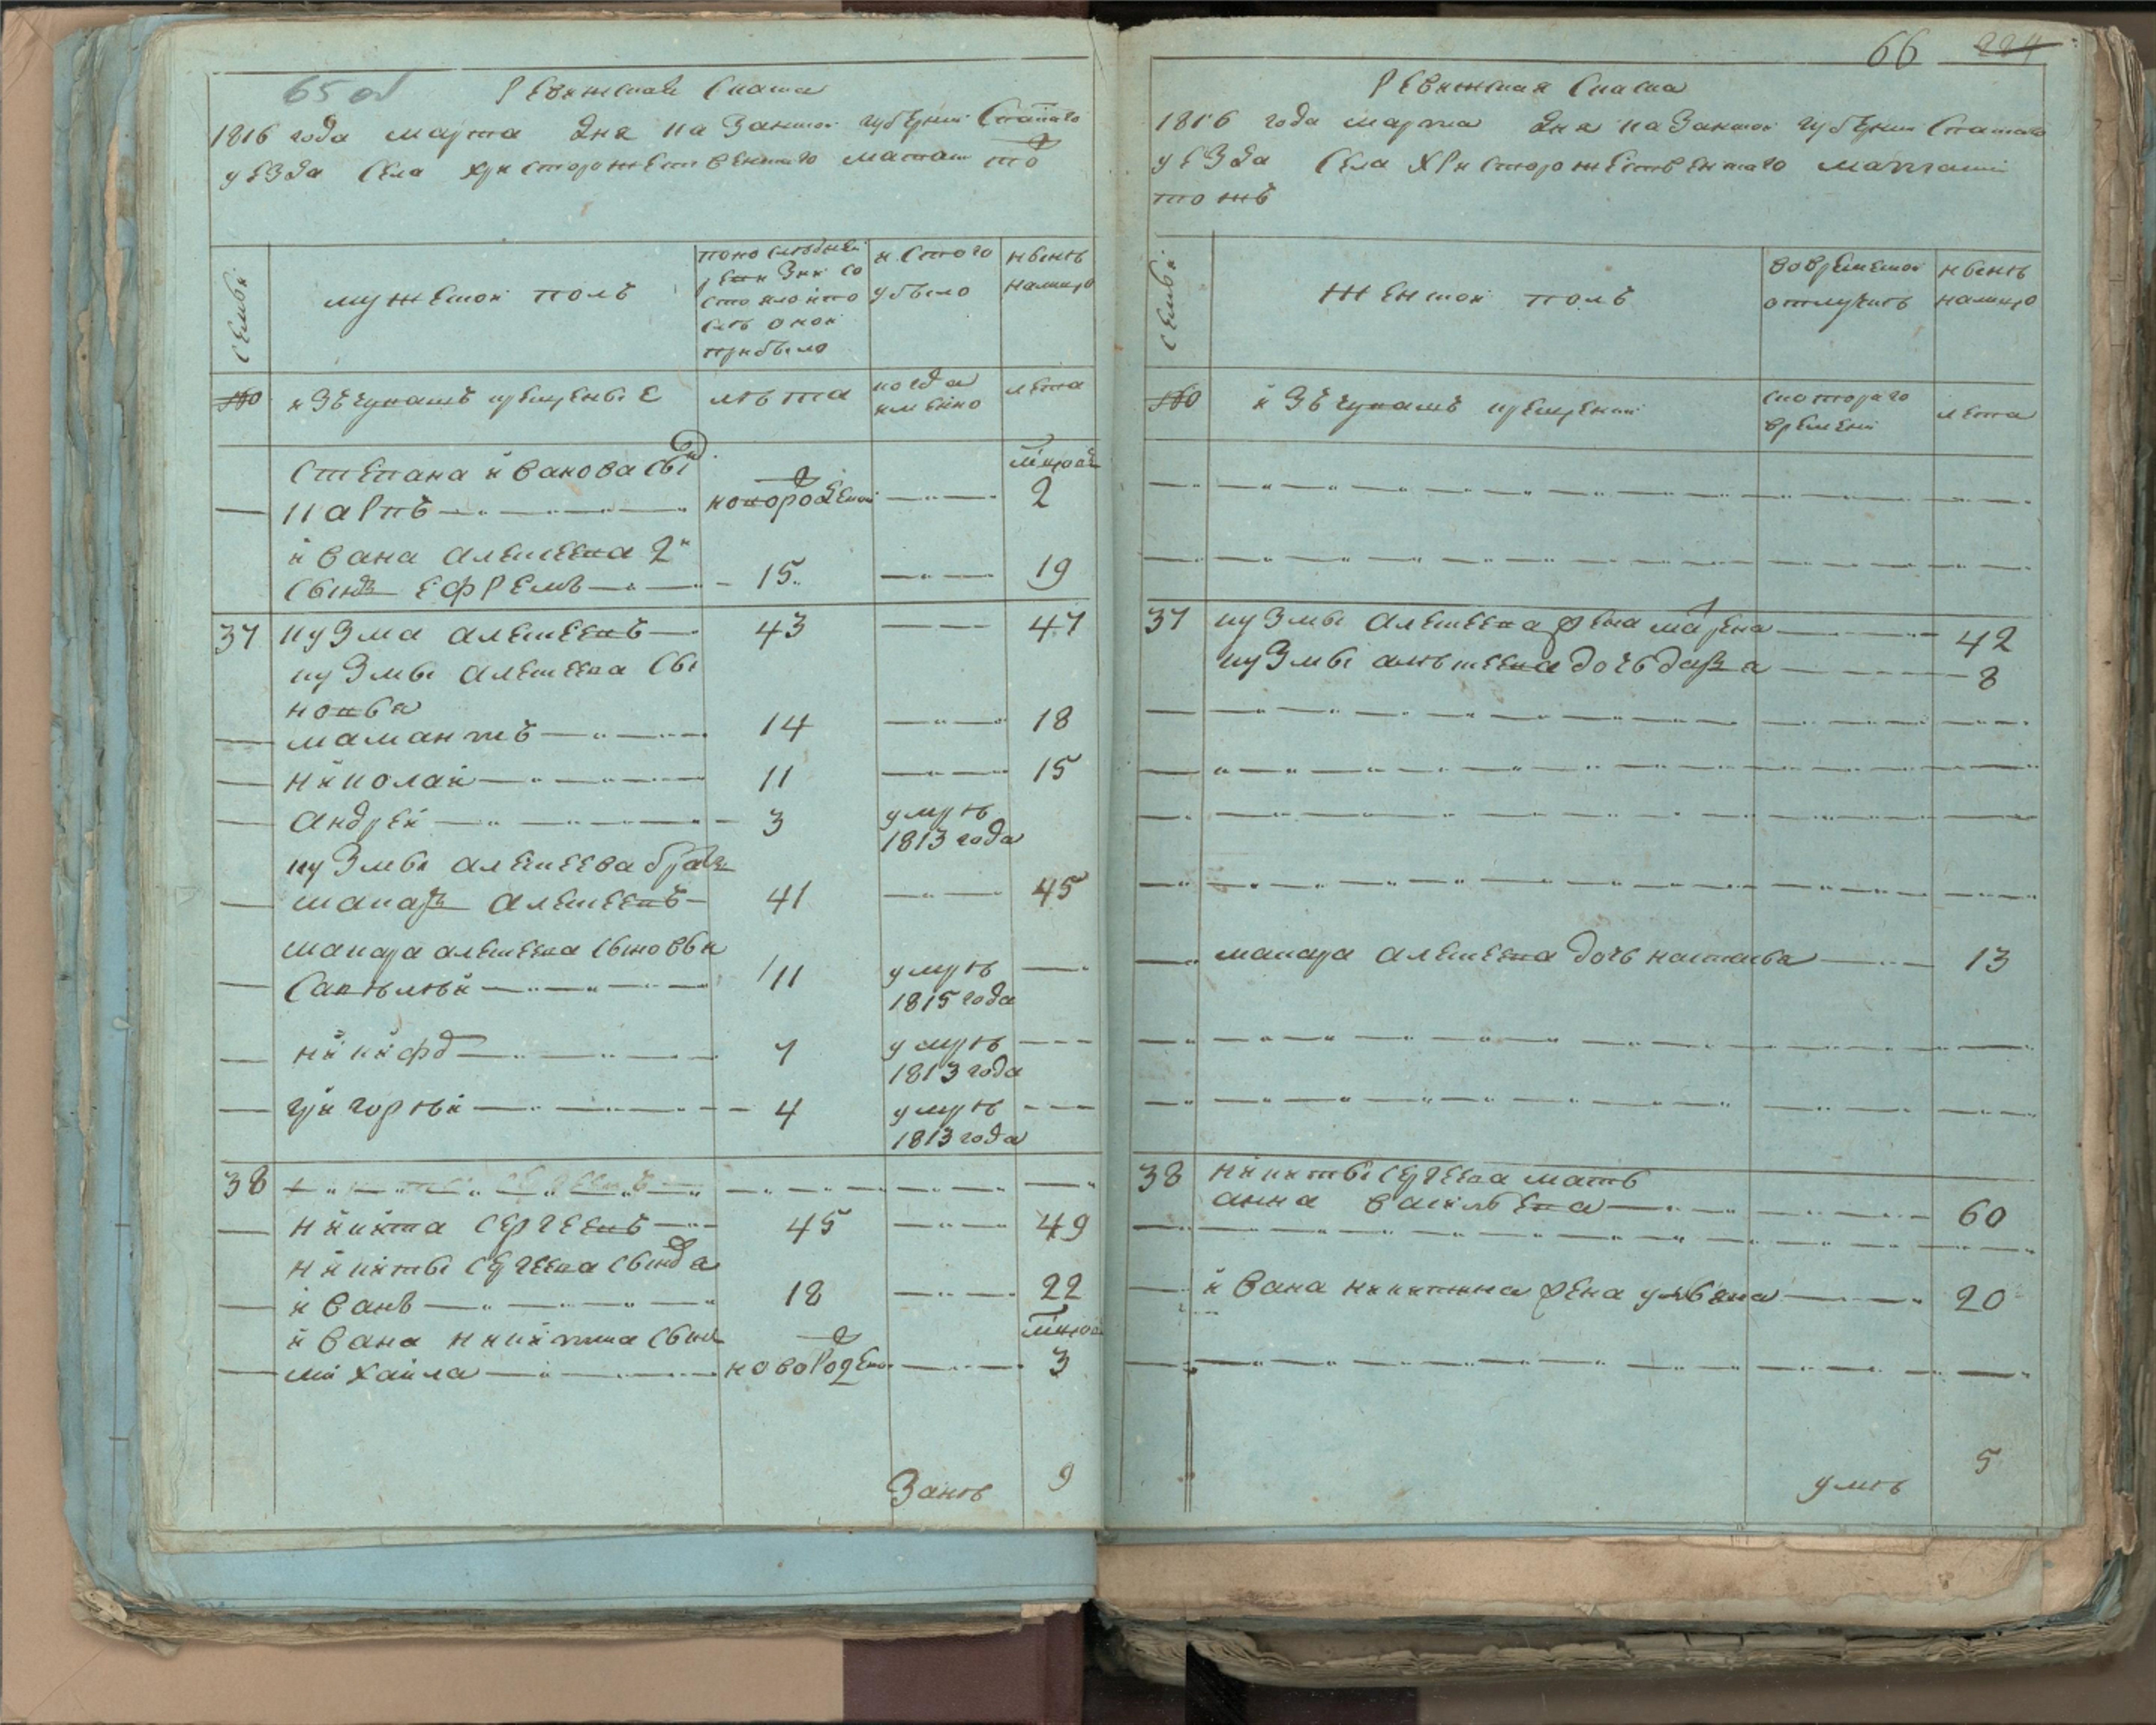 65 об
Ревижская Скаска
1816 года марта дня Казанской губернии Спаского
уезда села христорожественскаго маташ тό
семьи
мужеской полъ
по последней
ревизии со
стояло и по
сле оной
прибыло
и стого
убыло
ныне
налицо
№
изъчувашъ крещеные
лѣта
когда
именно
лета
Степана иванова сы
нъ
месяцов
— Карпъ — новорожденой — 2
ивана алексеева 2й
сынъ ефремъ — 15 — 19
37 кузма алексеевъ — 43 — 47
кузмы алексеева сы
новья
— мамантъ — 14 — 18
— николай — 11 — 15
— андрей — 3 умре
1813 года
кузмы алексеева братъ
— макаръ алексеевъ — 41 — 45
макара алексеева сыновьи
— Савѣлѣй — 11 умре —
1815 года
— никифо — 7 умре —
1813 года
— григорѣй — 4 умре —
1813 года
38 —
— никита сергеевъ — 45 — 49
никиты сергеева сынъ
— иванъ — 18 — 22
ивана никитина сынъ
месяцов
— михайла — новорожден — 3
9
66 224
Ревижская Скаска
1816 года марта дня Казанской губернии Спаского
уезда села христорожественнаго маташ
тожъ
семьи
женской полъ
вовременой
отлучке
ныне
налицо
№
изъчувашъ крещений
скотораго
времени
лета
37 кузмы алексеева жена марена — 42
кузмы алексеева дочь даря — 8
— макара алексеева дочь настасья — 13
38 никиты сергеева мать
анна васильева — 60
— ивана никитина жена ульяна — 20
5